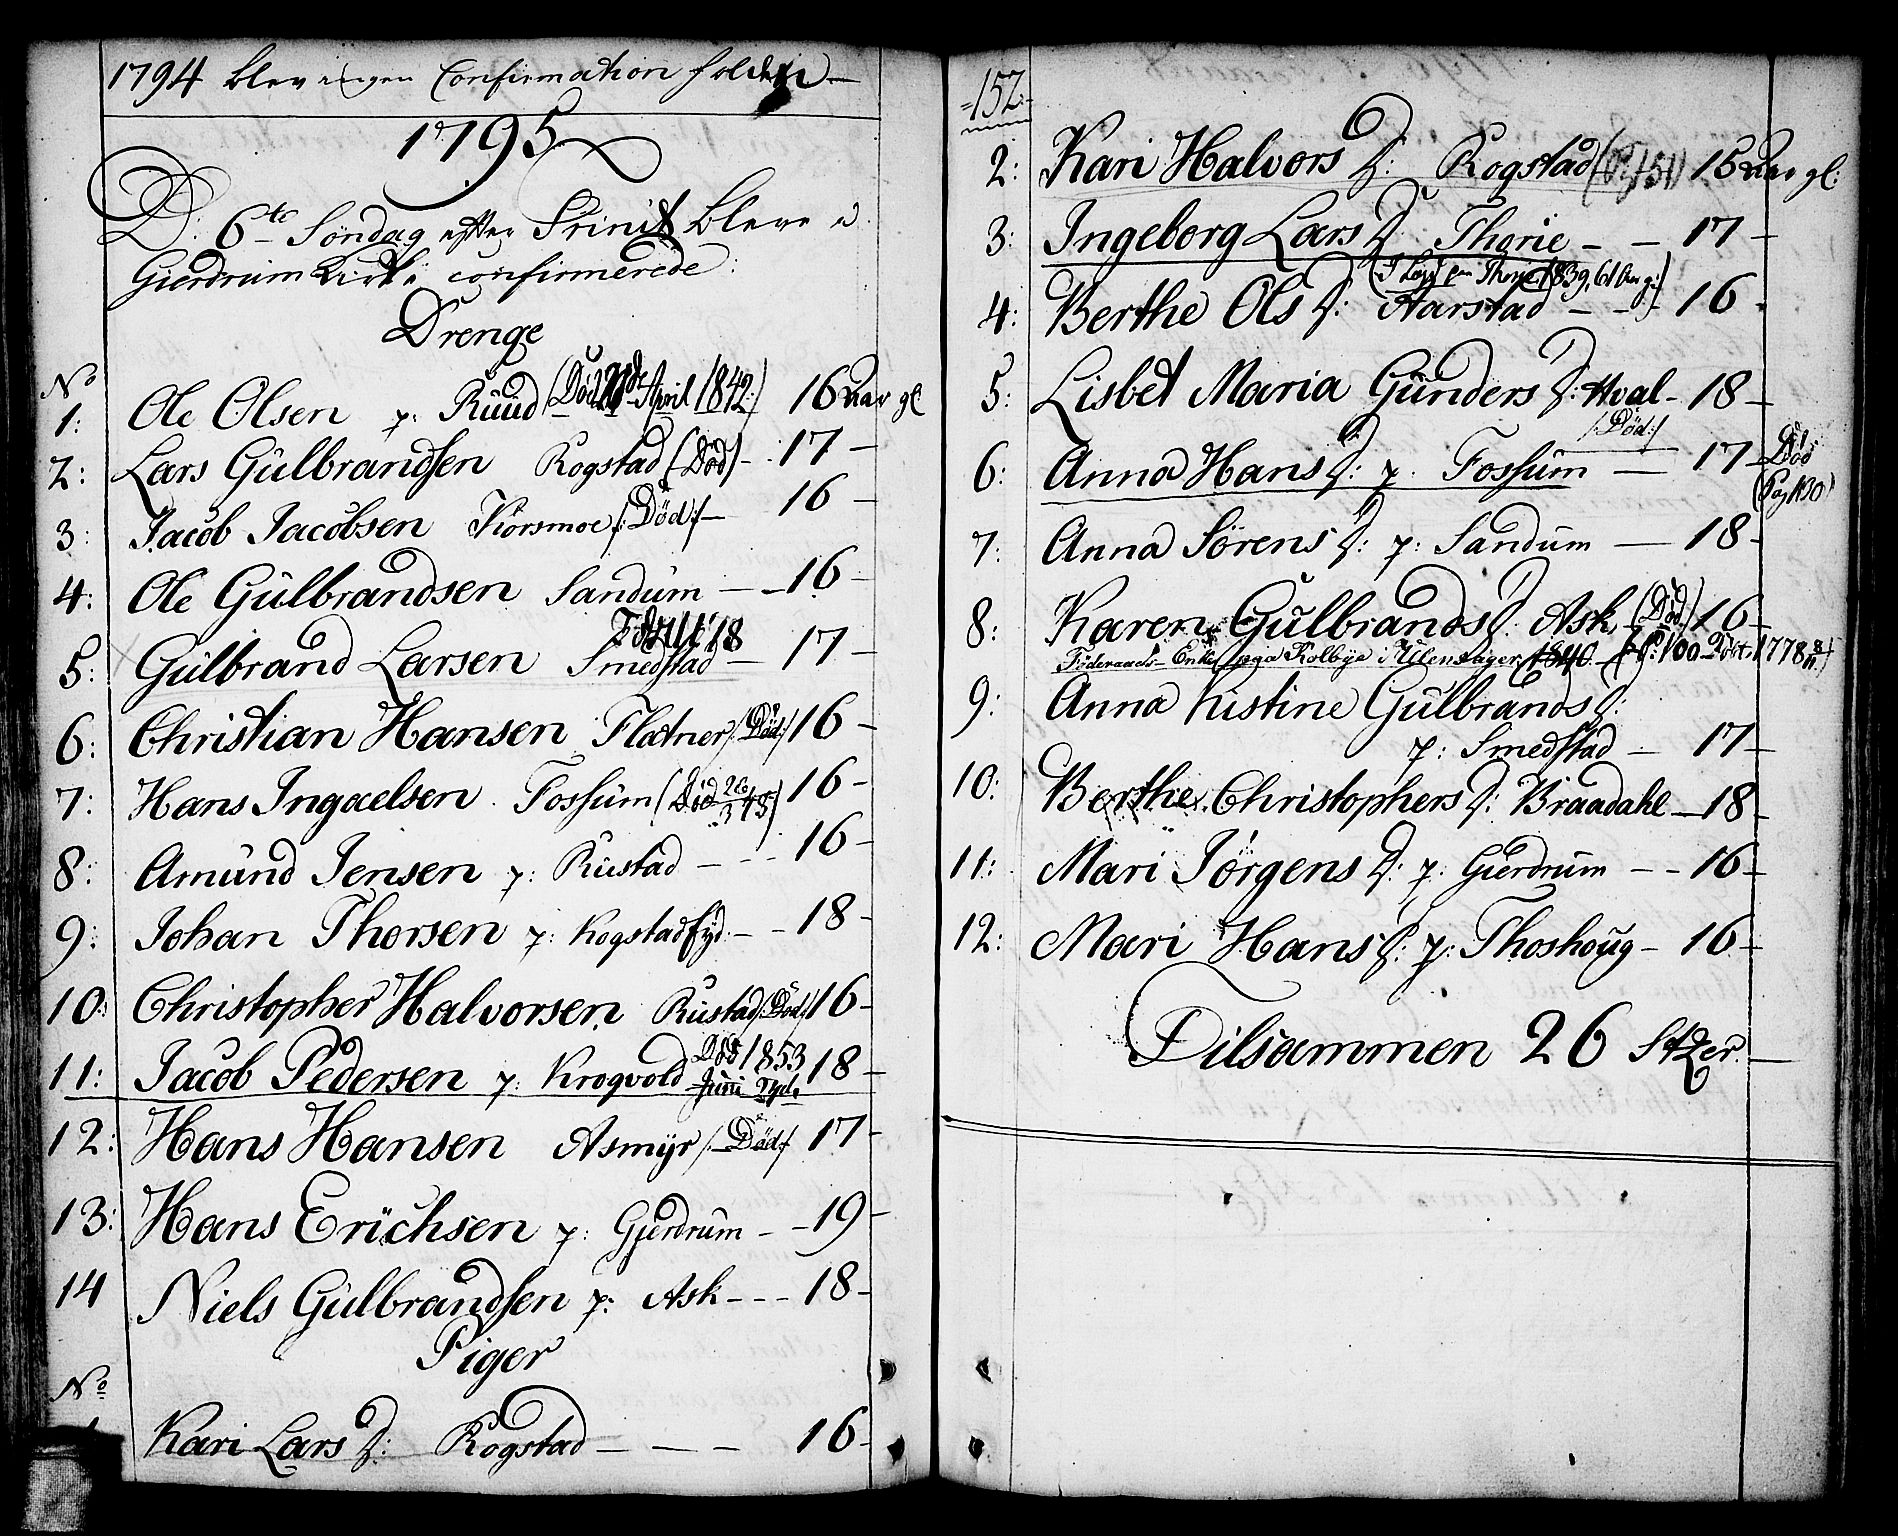 1794 blev ingen Confirmation holden
1795
D: 6te Søndag efter Trinit bleve i
Gierdrum Kirke confirmerede:
Drenge
No
1: Ole Olsen p: Ruud (Død April 1842:) 16 aar gl
2: Lars Gulbrandsen Rogstad (Død) - 17 -
3: Jacob Jacobsen Korsmoe /:Død:/ - 16 -
4: Ole Gulbrandsen Sandum - - 16 -
5: Gulbrand Larsen Smedstad - 17 -
6: Christian Hansen Flatner /:Død:/ 16 -
7: Hans Ingaelsen Fossum (Død 26/3 45) 16 -
8: Amund Jensen p: Rustad - - - 16 -
9: Johan Thorsen p: Rogstad Eyd: - - 18 -
10: Christopher Halvorsen Rustad /:Død:/ 16 -
Død 1853
11: Jacob Pedersen p: Krogvold Juni 18 -
12: Hans Hansen Asmyr /:Død:/ 17 -
13: Hans Erichsen p: Gjerdrum - - 19 -
14 Niels Gulbrandsen p: Ask - - - 18 -
Piger
No
Kari Lars D: Rogstad - - - - 16 -
=152=
2: Kari Halvors D: Rogstad (P: 151) 16 aar gl:
3: Ingeborg Lars D Thorie - - 17 -
Thorie 1839, 61 Aar g:)
4: Berthe Ols D: Aarstad - - - 16 -
5: Lisbet Maria Gunders D: Hval - 18 -
/:Død:/
6: Anna Hans D: p. Fossum - 17 - Død
(Pag 130)
7: Anna Sørens D: p: Sandum - 18 -
8: Karen Gulbrands D: Ask (Død) 16 -
Føderaads-Enke Kolbye i Ullensager 1840 P: 100 Født 1778
9: Anna Kistine Gulbrands D:
p: Smedstad - 17 -
10: Berthe Christophers D: Braadahl - 18 -
11: Mari Jørgens D: p: Gierdrum - - 16 -
12: Mari Hans D: p: Thoshoug - 16 -
Tilsammen 26 Stker. -